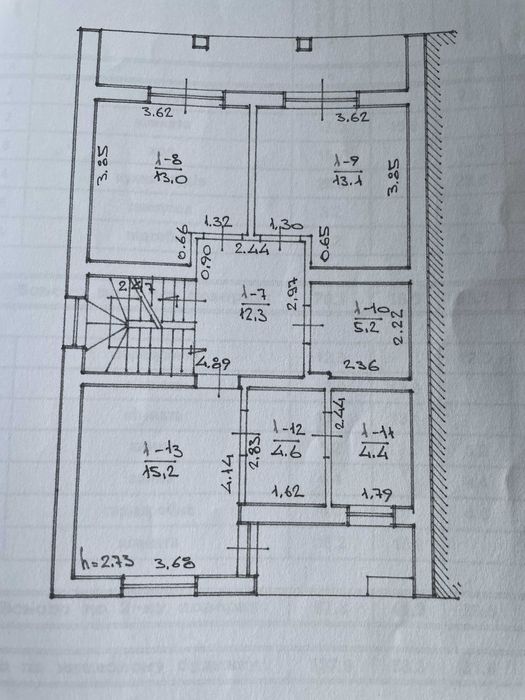 3.62
3.62
3.85
1-8
13,0
1-9
13.1
3.85
1.32
1,30
0.66
0,90
2.44
0.65
2,97
1-7
12,3
1-10
5,2
2.22
236
4.89
2.44
1-13
15,2
4.14
2.83
1-12
4.6
1-11
4.4
1,62
1,79
h=2.73
3,68